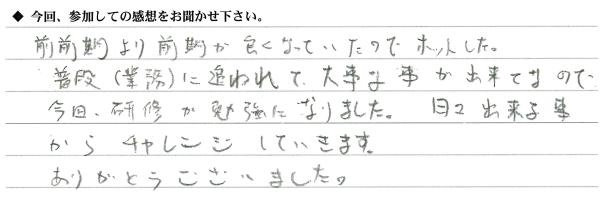 ◆ 今回、参加しての感想をお聞かせ下さい。
前前期より前期が良くなっていたのでホットした。
普段（業務）に追われて、大事な事が出来てまので
今回、研修が勉強になりました。 日々出来る事
からチャレンジしていきます。
ありがとうございました。